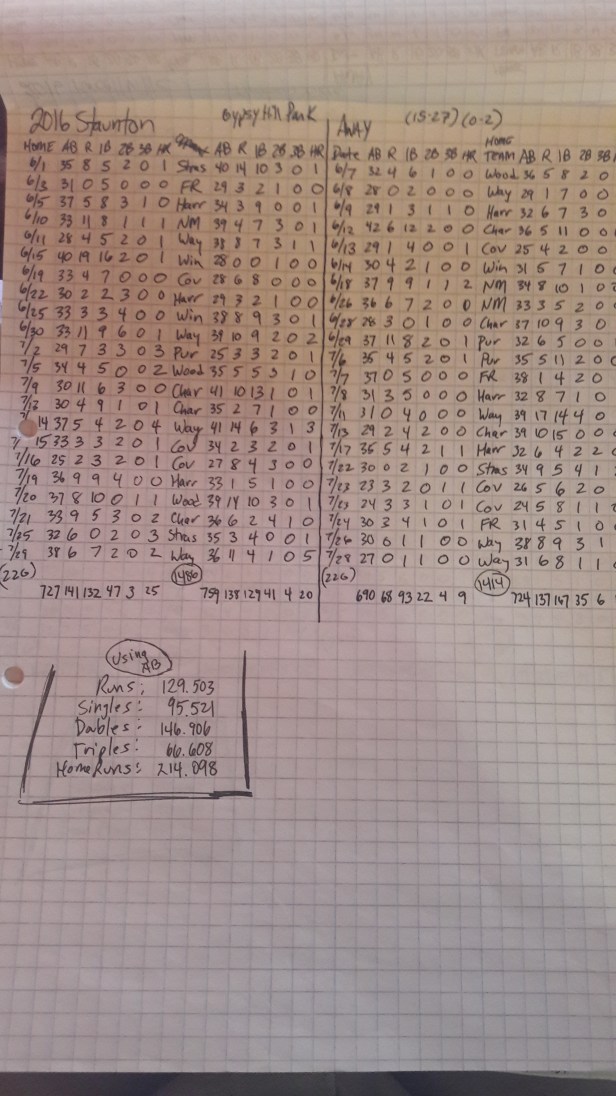 2016 Staunton Gypsy Hill Park Away (15-27) (0-2)
HOME AB R 1B 2B 3B HR AB R 1B 2B 3B HR Date AB R 1B 2B 3B HR HOME TEAM AB R 1B 2B 3B
6/1 35 8 5 2 0 1 Stras 40 14 10 3 0 1 6/7 32 4 6 1 0 0 Wood 36 5 8 2 0
6/3 31 0 5 0 0 0 FR 29 3 2 1 0 0 6/8 28 0 2 0 0 0 Way 29 1 7 0 0
6/5 37 5 8 3 1 0 Harr 34 3 9 0 0 1 6/9 29 1 3 1 1 0 Harr 32 6 7 3 0
6/10 33 11 8 1 1 1 NM 39 4 7 3 0 1 6/12 42 6 12 2 0 0 Char 36 5 11 0 0
6/11 28 4 5 2 0 1 Way 38 8 7 3 1 1 6/13 29 1 4 0 0 1 Cov 25 4 2 0 0
6/15 40 19 16 2 0 1 Win 28 0 0 1 0 0 6/14 30 4 2 1 0 0 Win 31 5 7 1 0
6/19 33 4 7 0 0 0 Cov 28 6 8 0 0 0 6/18 37 9 9 1 1 2 NM 34 8 10 1 0
6/22 30 2 2 3 0 0 Harr 29 3 2 1 0 0 6/26 36 6 7 2 0 0 NM 33 3 5 2 0
6/25 33 3 3 4 0 0 Win 38 8 9 3 0 1 6/28 28 3 0 1 0 0 Char 37 10 9 3 0
6/30 33 11 9 6 0 1 Way 39 10 9 2 0 2 6/29 37 11 8 2 0 1 Pur 32 6 5 0 0
7/2 29 7 3 3 0 3 Pur 25 3 3 2 0 1 7/6 35 4 5 2 0 1 Pur 35 5 11 2 0
7/5 34 4 5 0 0 2 Wood 35 5 5 3 1 0 7/7 37 0 5 0 0 0 FR 38 1 4 2 0
7/9 30 11 6 3 0 0 Char 41 10 13 1 0 1 7/8 31 3 5 0 0 0 Harr 32 8 7 1 0
30 4 9 1 0 1 Char 35 2 7 1 0 0 7/11 31 0 4 0 0 0 Way 39 17 14 4 0
14 37 5 4 2 0 4 Way 41 14 6 3 1 3 7/13 29 2 4 2 0 0 Char 39 10 15 0 0
15 33 3 3 2 0 1 Cov 34 2 3 2 0 1 7/17 35 5 4 2 1 1 Harr 32 6 4 2 2
7/16 25 2 3 2 0 1 Cov 27 8 4 3 0 0 7/22 30 0 2 1 0 0 Stras 34 9 5 4 1
7/19 36 9 9 4 0 0 Harr 33 1 5 1 0 0 7/23 23 3 2 0 1 1 Cov 26 5 6 2 0
7/20 37 8 10 0 1 1 Wood 39 14 10 3 0 1 7/23 24 3 3 1 0 1 Cov 24 5 8 1 1
7/21 33 9 5 3 0 2 Char 36 6 2 4 1 0 7/24 30 3 4 1 0 1 FR 31 4 5 1 0
7/25 32 6 0 2 0 3 Stras 35 3 4 0 0 1 7/26 30 0 1 1 0 0 Way 38 8 9 3 1
7/29 38 6 7 2 0 2 Way 36 11 4 1 0 5 7/28 27 0 1 1 0 0 Way 31 6 8 1 1
(22G) 1486 (22G) 1414
727 141 132 47 3 25 759 138 129 41 4 20 690 68 93 22 4 9 724 137 167 35 6
Using AB
Runs: 129.503
Singles: 95.521
Doubles: 146.906
Triples: 66.608
HomeRuns: 214.098